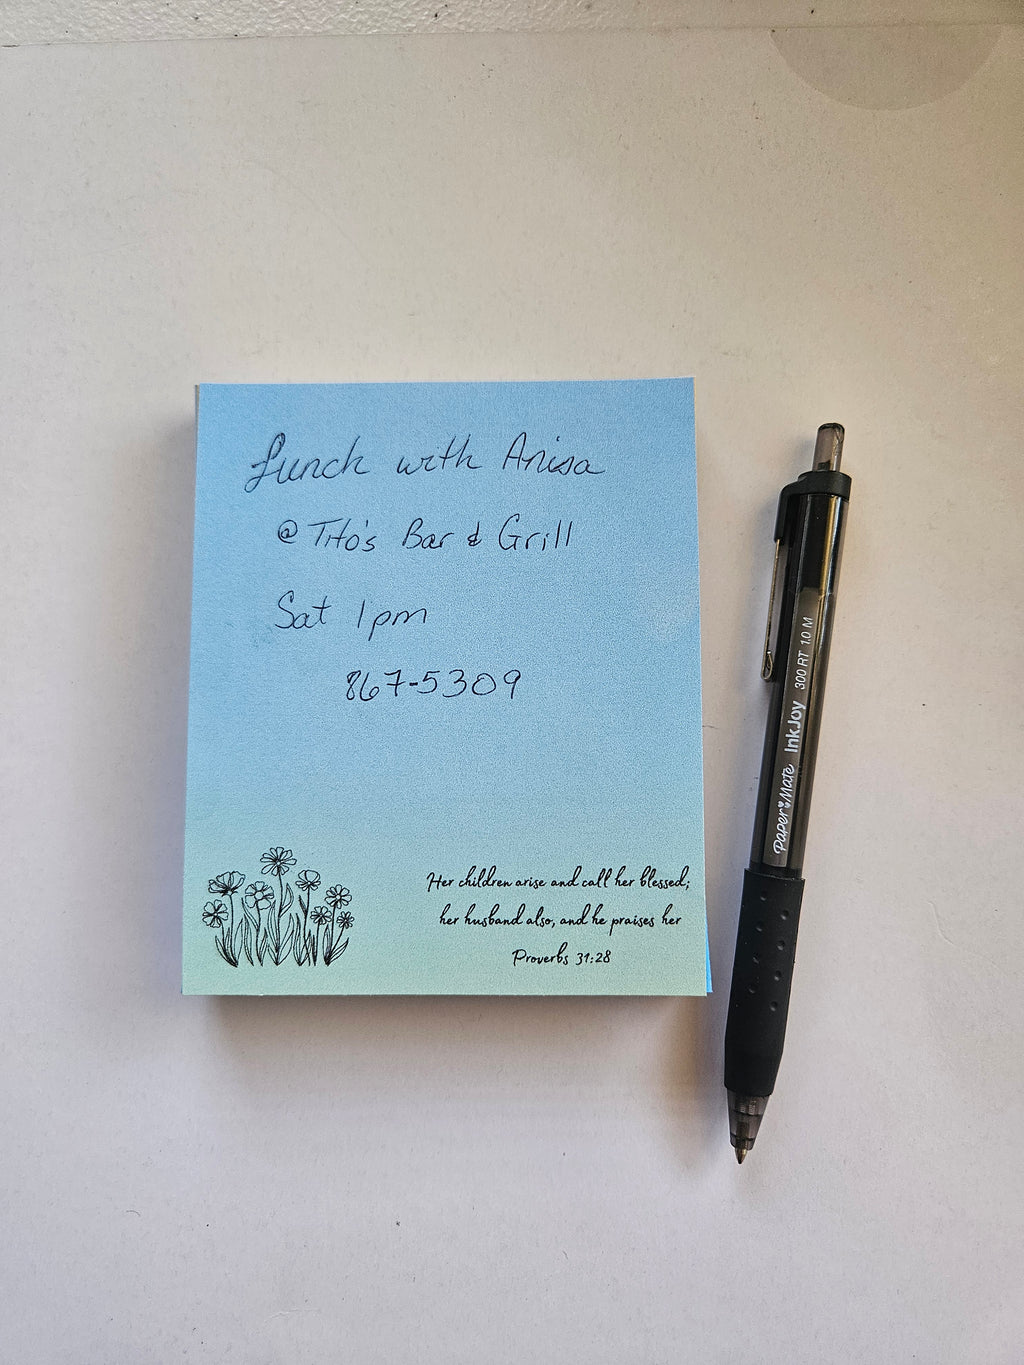 Lunch with Anisa
@ Tito's Bar & Grill
Sat 1pm
867-5309
Her children arise and call her blessed;
her husband also, and he praises her
Proverbs 31:28
Paper Mate InkJoy 300 RT 1.0 M